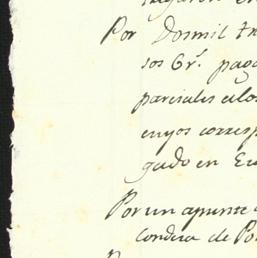 Por Dosmil tre
sos Gr.ˢ paga
parciales a los
cuyos corresp
gado en Eu
Por un apunte
Condera de Po